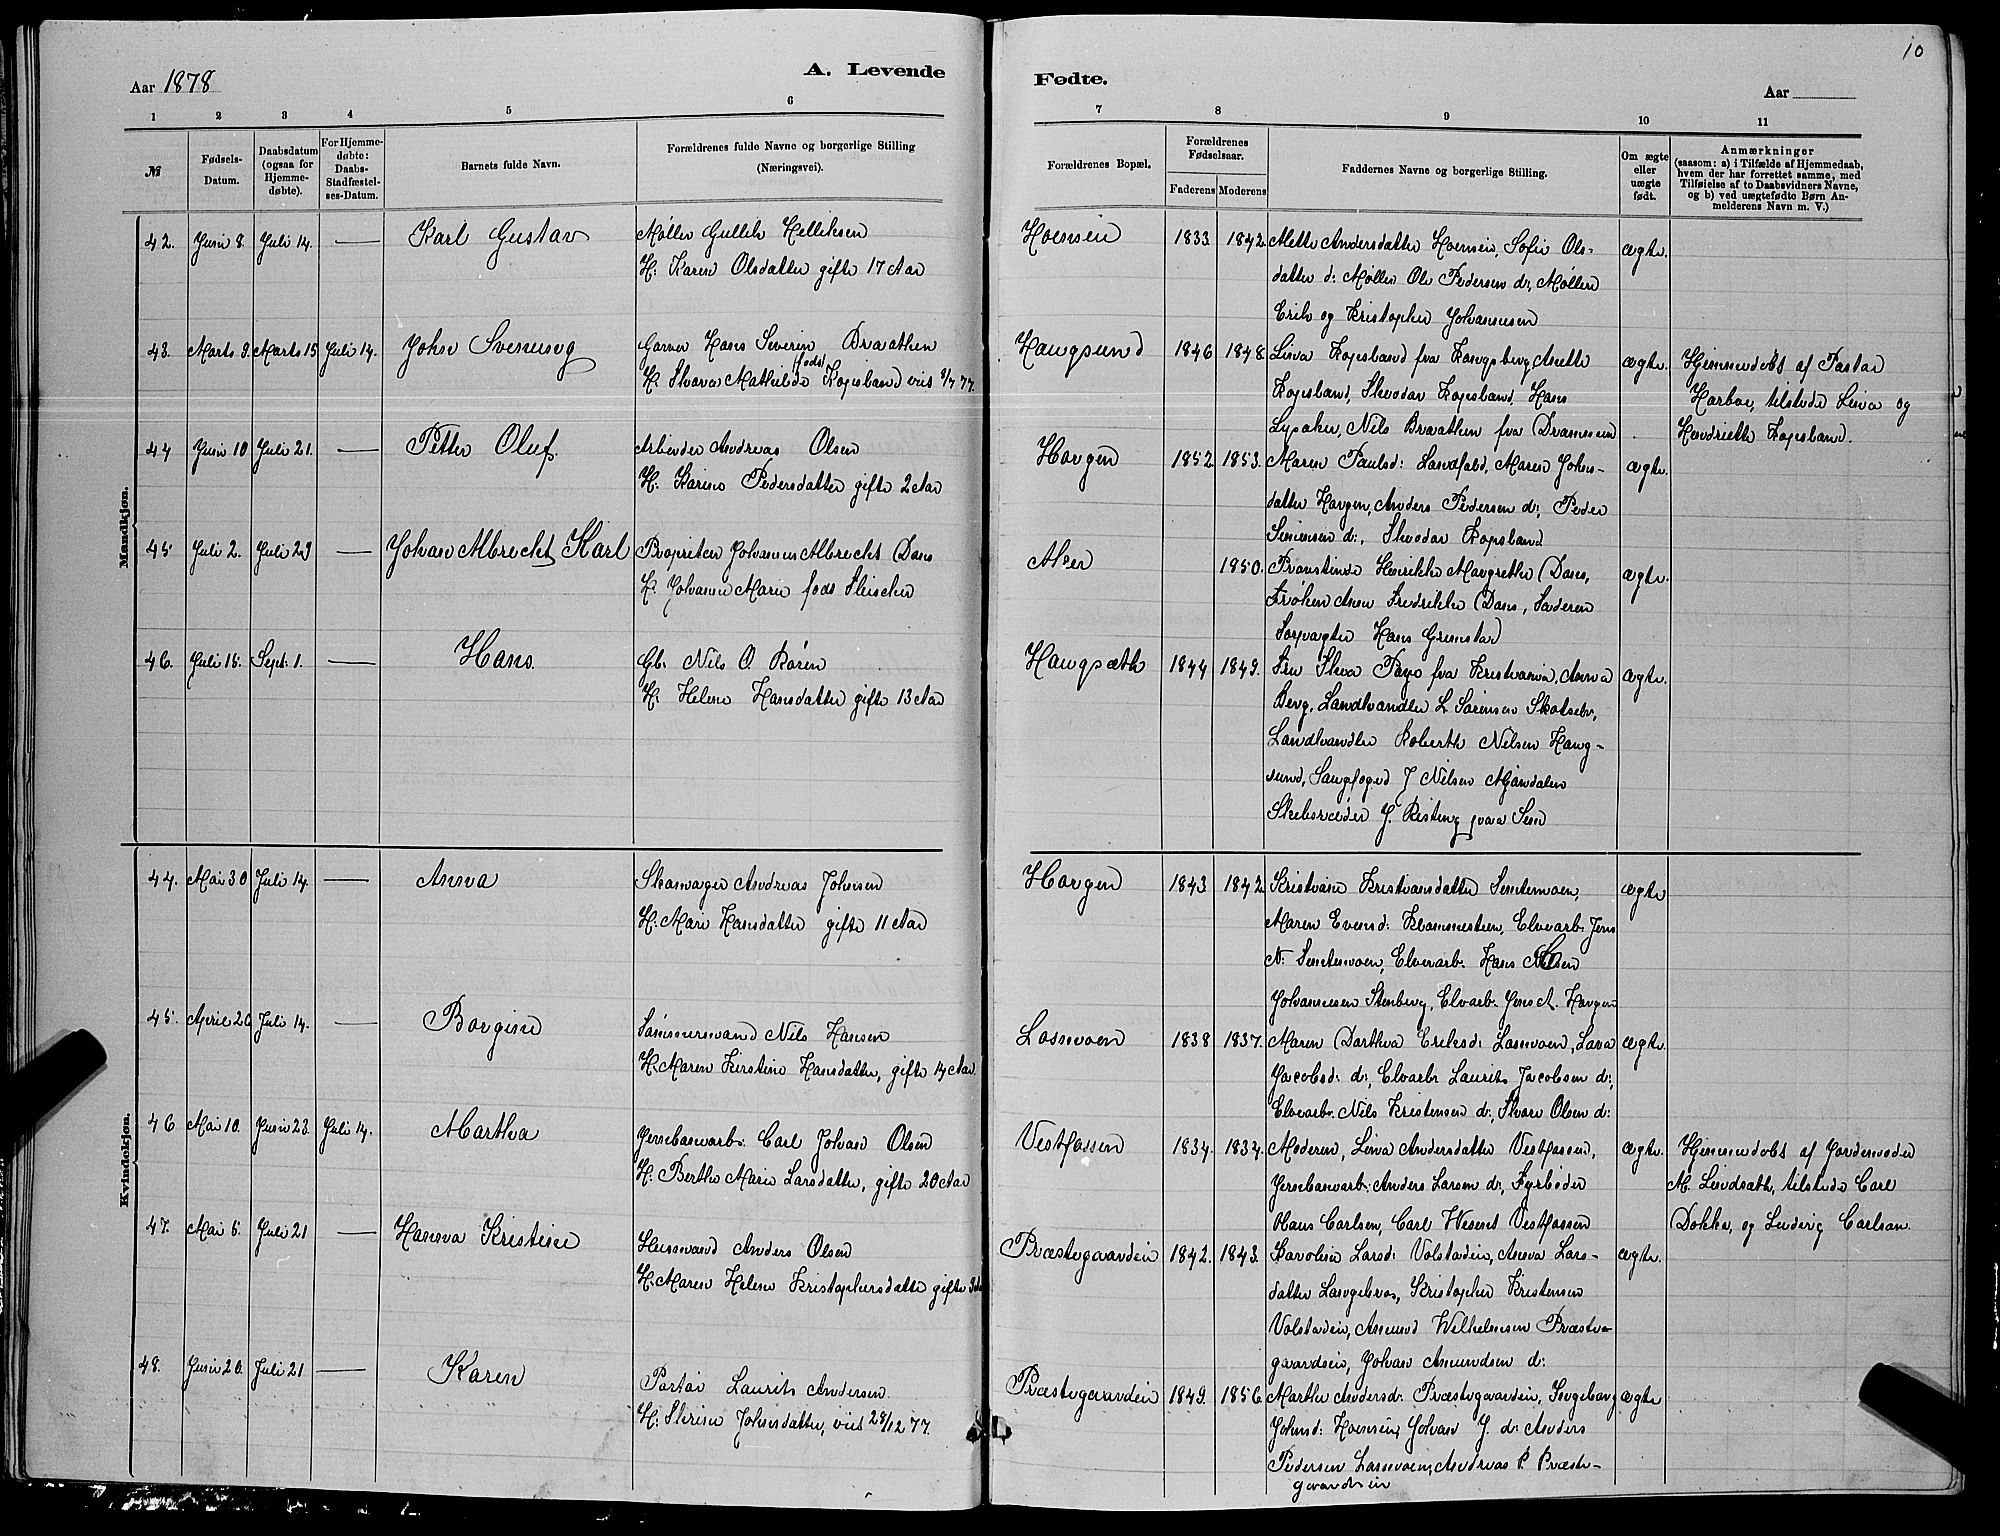 10
Aar 1878
A. Levende
Fødte.
Aar
1 2 3 4 5 6 7 8 9 10 11
№
Fødsels-
Datum.
Daabsdatum
(ogsaa for
Hjemme-
døbte).
For Hjemme-
døbte:
Daabs-
Stadfæstel-
ses-Datum.
Barnets fulde Navn.
Forældrenes fulde Navne og borgerlige Stilling
(Næringsvei).
Forældrenes Bopæl.
Forældrenes
Fødselsaar.
Faderens Moderens
Faddernes Navne og borgerlige Stilling.
Om ægte
eller
uægte
født.
Anmærkninger
(saasom: a) i Tilfælde af Hjemmedaab,
hvem der har forrettet samme, med
Tilføielse af to Daabsvidners Navne,
og b) ved uægtefødte Børn An-
melderens Navn m. V.)
Mandkjøn.
42. Juni 8. Juli 14. — Karl Gustav
Møller Gullik Helliksen
H. Karen Olsdatter gifte 17 Aar
Hoensen 1833 1842
Mette Andersdatter Hoensen, Sofie Ols-
datter d: Møller Ole Pedersen d:, Møllere
Erik og Kristopher Johannesen
ægte.
43. Marts 9. Marts 15 Juli 14. Johan
Garver Hans Severin Braathen
(født)
H. Mathilde Kopsland viet 8/7 77.
Haugsund 1846 1848.
Lina Kopsland fra Kongsberg, Anette
Kopsland, Kopsland, Hans
Lysaker, Nils Braathen fra Drammen
ægte.
Hjemmedøbt af Pastor
Harboe, tilstede Lina og
Hendriette Kopsland.
44 Juni 10 Juli 21. — Petter Oluf.
Arbeider Andreas Olsen
H. Karine Pedersdatter gifte 2 Aar
Horgen 1852. 1853.
Maren Paulsd: Landfald, Maren Johns-
datter Horgen, Anders Pedersen d:, Peder
Simensen d:, Kopsland
ægte.
45 Juli 2. Juli 29 — Johan Albrecht Karl
Proprietær Johannes Albrecht Dans
H. Johanne Marie født
Aker 1850.
Provstinde Henrikke Margrethe Dans,
Frøken Anne Fredrikke Dans, Faderen
Hans Grimstad
ægte.
46. Juli 15. Sept. 1. — Hans.
Gb. Nils O. Røren
H. Helene Hansdatter gifte 13 Aar
Haugsæth 1844 1849.
Fru fra Kristiania, Anna
Berg, Landhandler L. Sørensen Skotselv,
Landhandler Roberth Nilsen Haug-
sund, J Nilsen Mjøndalen
J. Risting paa Sem
ægte.
Kvindekjøn.
44. Mai 30 Juli 14. — Anna
Andreas Johnsen
H. Mari Hansdatter gifte 11 Aar
Horgen 1843 1842
Kristiane Kristiansdatter
Maren Evensd: Elvearb. Jens
N. Elvearb. Hans
Johannesen Stenberg, Elvarb. Jens A. Horgen
ægte
45. April 26 Juli 14. — Borgine
Tømmermand Nils Hansen
H. Maren Kirstine Hansdatter, gifte 14 Aar
Losmoen 1838 1837.
Maren Dorthea Eriksd: Losmoen, Lava
Jacobsd: d:, Elvarb. Laurits Jacobsen d:,
Elvearb. Nils Kristensen d:, Olsen d:
ægte.
46 Mai 10. Juni 23. Juli 14. Martha
Jernbanearb. Carl Johan Olsen
H. Berthe Marie Larsdatter, gifte 20 Aar
Vestfossen 1834. 1834.
Moderen, Lina Andersdatter Vestfossen,
Jernbanearb. Anders Larsen d:, Fyrbøder
Hans Carlsen, Carl Vestfossen
ægte.
Hjemmedøbt af Jordemoder
M. Lindsæth, tilstede Carl
Dokka, og Ludvig Carlsen
47. Mai 6. Juli 21 — Hanna Kristine
Husmand Anders Olsen
H. Maren Helene Kristophersdatter gifte
Præstegaardseie 1842. 1843.
Karoline Larsd: Volstadeie, Anna Lars-
datter Langebro, Kristopher Kristensen
Volstadeie, Amund Wilhelmsen Præste-
gaardseie, Johan Amundsen d:
ægte.
48. Juni 20. Juli 21 — Karen
Laurits Andersen
H. Johnsdatter, viet 28/12 77.
Præstegaardseie 1849. 1856.
Marthe Andersd: Præstegaardseie, Ingeborg
Johnsd: Hoensen, Johan J. d: Anders
Pedersen Losmoen, Andreas P. Præste-
gaardseie
ægte